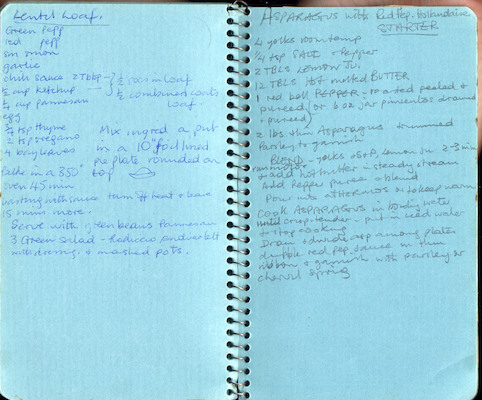 Lentil Loaf.
Green Pepp
red pepp
sm onion
garlic
chili sauce 2 Tbsp
½ cup Ketchup
½ goes in Loaf
½ combined coats
Loaf.
¼ cup parmesan
egg
¾ tsp thyme
2 tsp oregano
4 bay leaves
Mix ingred & put
in a 10" foil lined
pie plate rounded on
top
Bake in a 350°
oven 45 min
basting with sauce turn off heat & leave
15 mins more.
Serve with green beans Parmesan
3 Green Salad - Radiccio, endive, bibb
with dressing. & mashed pots.
ASPARAGUS with Red Pep. Hollandaise
STARTER
4 yolks room temp
¼ tsp SALT & Pepper
2 TBLS LEMON JU.
12 TBLS Hot melted BUTTER
1 red bell PEPPER - roasted peeled &
pureed (or 6 oz jar pimientos drained
& pureed)
2 lbs thin Asparagus trimmed
Parsley to garnish
BLEND - yolks + S + P, Lemon Ju. 2-3 min
add hot butter in steady stream
Add Pepper puree & blend
Pour into THERMOS to keep warm
COOK ASPARAGUS in boiling water
until crisp tender - put in iced water
to stop cooking
Drain & divide asp among plates
dribble red pep. sauce in thin
ribbon & garnish with parsley or
chervil sprig